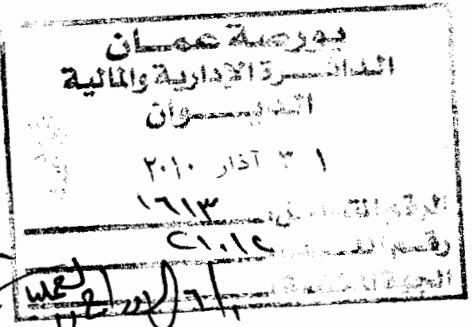 بورصة عمان
الدائـــرة الإدارية والمالية
الديـــوان
٣١ آذار ٢٠١٠
الرقم المتسلسل ١٦١٣
رقم ٢١٠١٢
الجهة المختصة